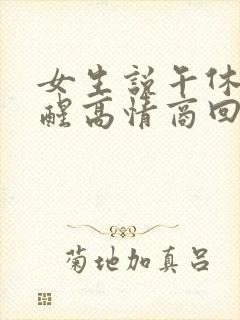 女生说午休
醒高情商回
菊地加真吕